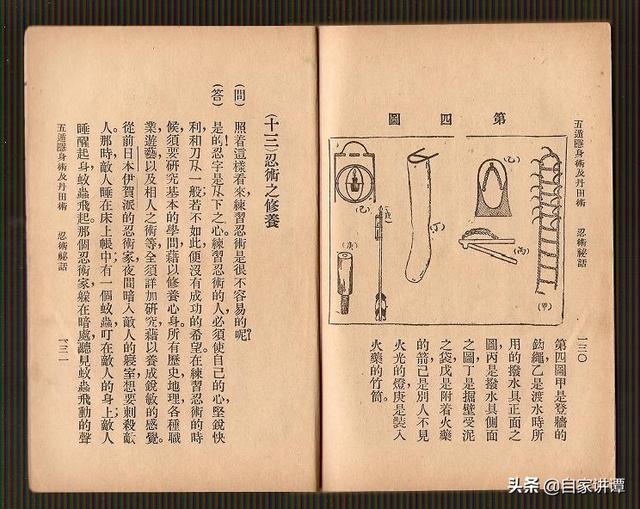 五遁隱身術及丹田術 忍術秘話 一三〇
第四圖
(甲)
(乙)
(丙)
(丁)
(戊)
(己)
(庚)
第四圖甲是登牆的
鈎繩乙是渡水時所
用的撥水具正面之
圖丙是撥水具側面
之圖丁是掘壁受泥
之袋戊是附着火藥
的箭己是別人不見
火光的燈庚是裝入
火藥的竹筒。
(十三)忍術之修養
(問) 照着這樣看來練習忍術是很不容易的呢?
(答) 是的!忍字是刃下之心。練習忍術的人必須使自己的心堅銳快
利和刀刃一般若不如此便沒有成功的希望在練習忍術的時
候須要研究基本的學問藉以修養心身。所有歷史地理各種職
業遊藝以及相人之術等全須詳加研究藉以養成銳敏的感覺。
從前日本伊賀派的忍術家夜間暗入敵人的寢室想要刺殺敵
人那時敵人睡在床上帳中有一個蚊蟲叮在敵人的身上敵人
睡醒起身蚊蟲飛起。那個忍術家躲在暗處聽見蚊蟲飛動的聲
五遁隱身術及丹田術 忍術秘話 一三一
头条 @自家讲谭